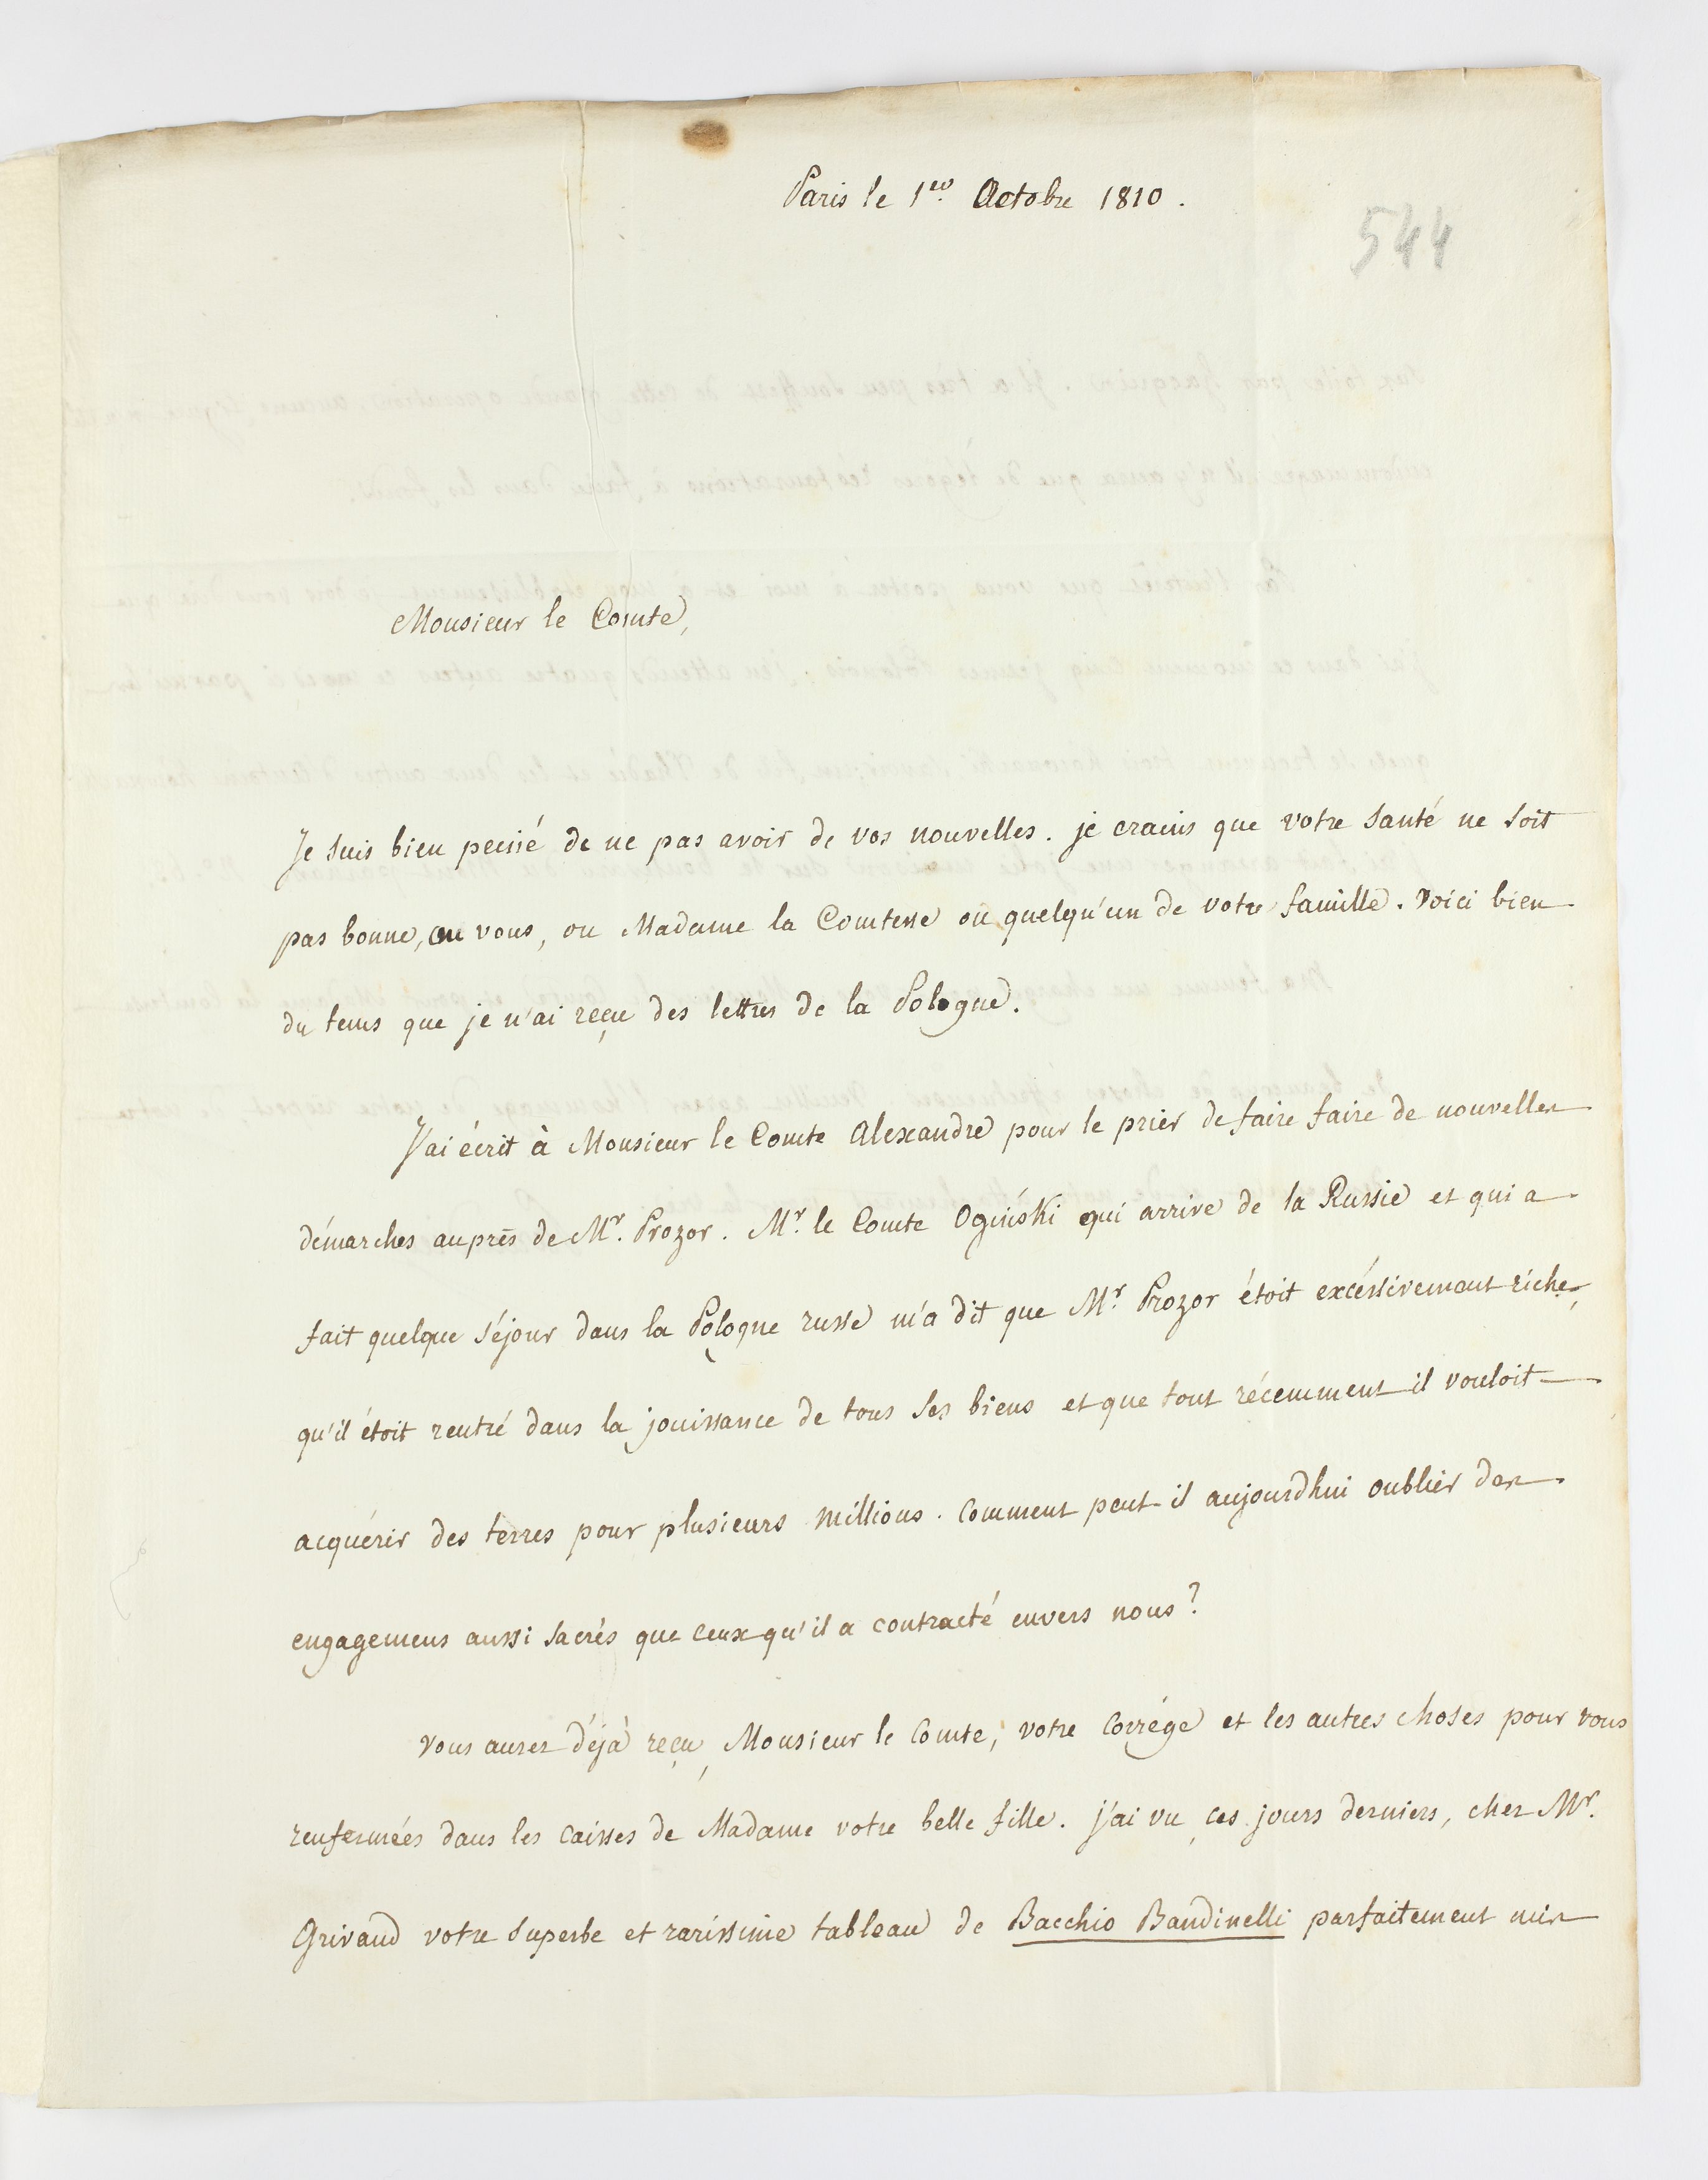 Paris le 1er Octobre 1810.
544
Monsieur le Comte,
Je suis bien peiné de ne pas avoir de vos nouvelles. je crains que votre santé ne soit
pas bonne, ou vous, ou Madame la Comtesse ou quelqu'un de votre famille. Voici bien
du tems que je n'ai reçu des lettres de la Pologne.
J'ai écrit à Monsieur le Comte Alexandre pour le prier de faire faire de nouvelles
démarches auprès de Mr. Prozor. Mr. le Comte Ogiński qui arrive de la Russie et qui a
fait quelque séjour dans la Pologne russe m'a dit que Mr. Prozor étoit excéssivement riche,
qu'il étoit rentré dans la jouissance de tous ses biens et que tout récemment il vouloit
acquérir des terres pour plusieurs millions. Comment peut-il aujourdhui oublier des
engagemens aussi sacrés que ceux qu'il a contracté envers nous?
Vous aurez déjà reçu, Monsieur le Comte, votre Corrége et les autres choses pour vous
renfermées dans les caisses de Madame votre belle fille. j'ai vu ces jours derniers, chez Mr.
Grivaud votre superbe et rarissime tableau de Bacchio Bandinelli parfaitement mis